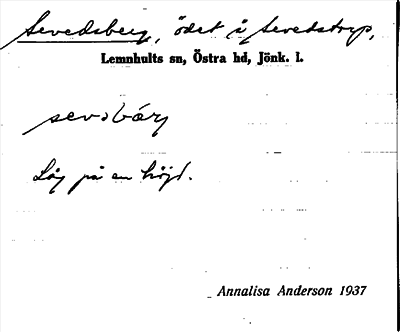 Sevedsberg, ödet å Sevedstorp,
Lemnhults sn, Östra hd, Jönk. l.
sevəbárj
Låg på en höjd.
Annalisa Anderson 1937